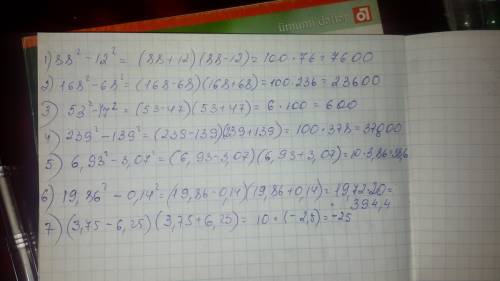 ümumi dəftər
1) 88² - 12² = (88+12)(88-12) = 100·76 = 7600
2) 168² - 68² = (168-68)(168+68) = 100·236 = 23600
3) 53² - 47² = (53-47)(53+47) = 6·100 = 600
4) 239² - 139² = (239-139)(239+139) = 100·378 = 37800
5) 6,93² - 3,07² = (6,93-3,07)(6,93+3,07) = 10·3,86 = 38,6
6) 19,86² - 0,14² = (19,86-0,14)(19,86+0,14) = 19,72·20 =
394,4
7) (3,75-6,25)(3,75+6,25) = 10·(-2,5) = -25